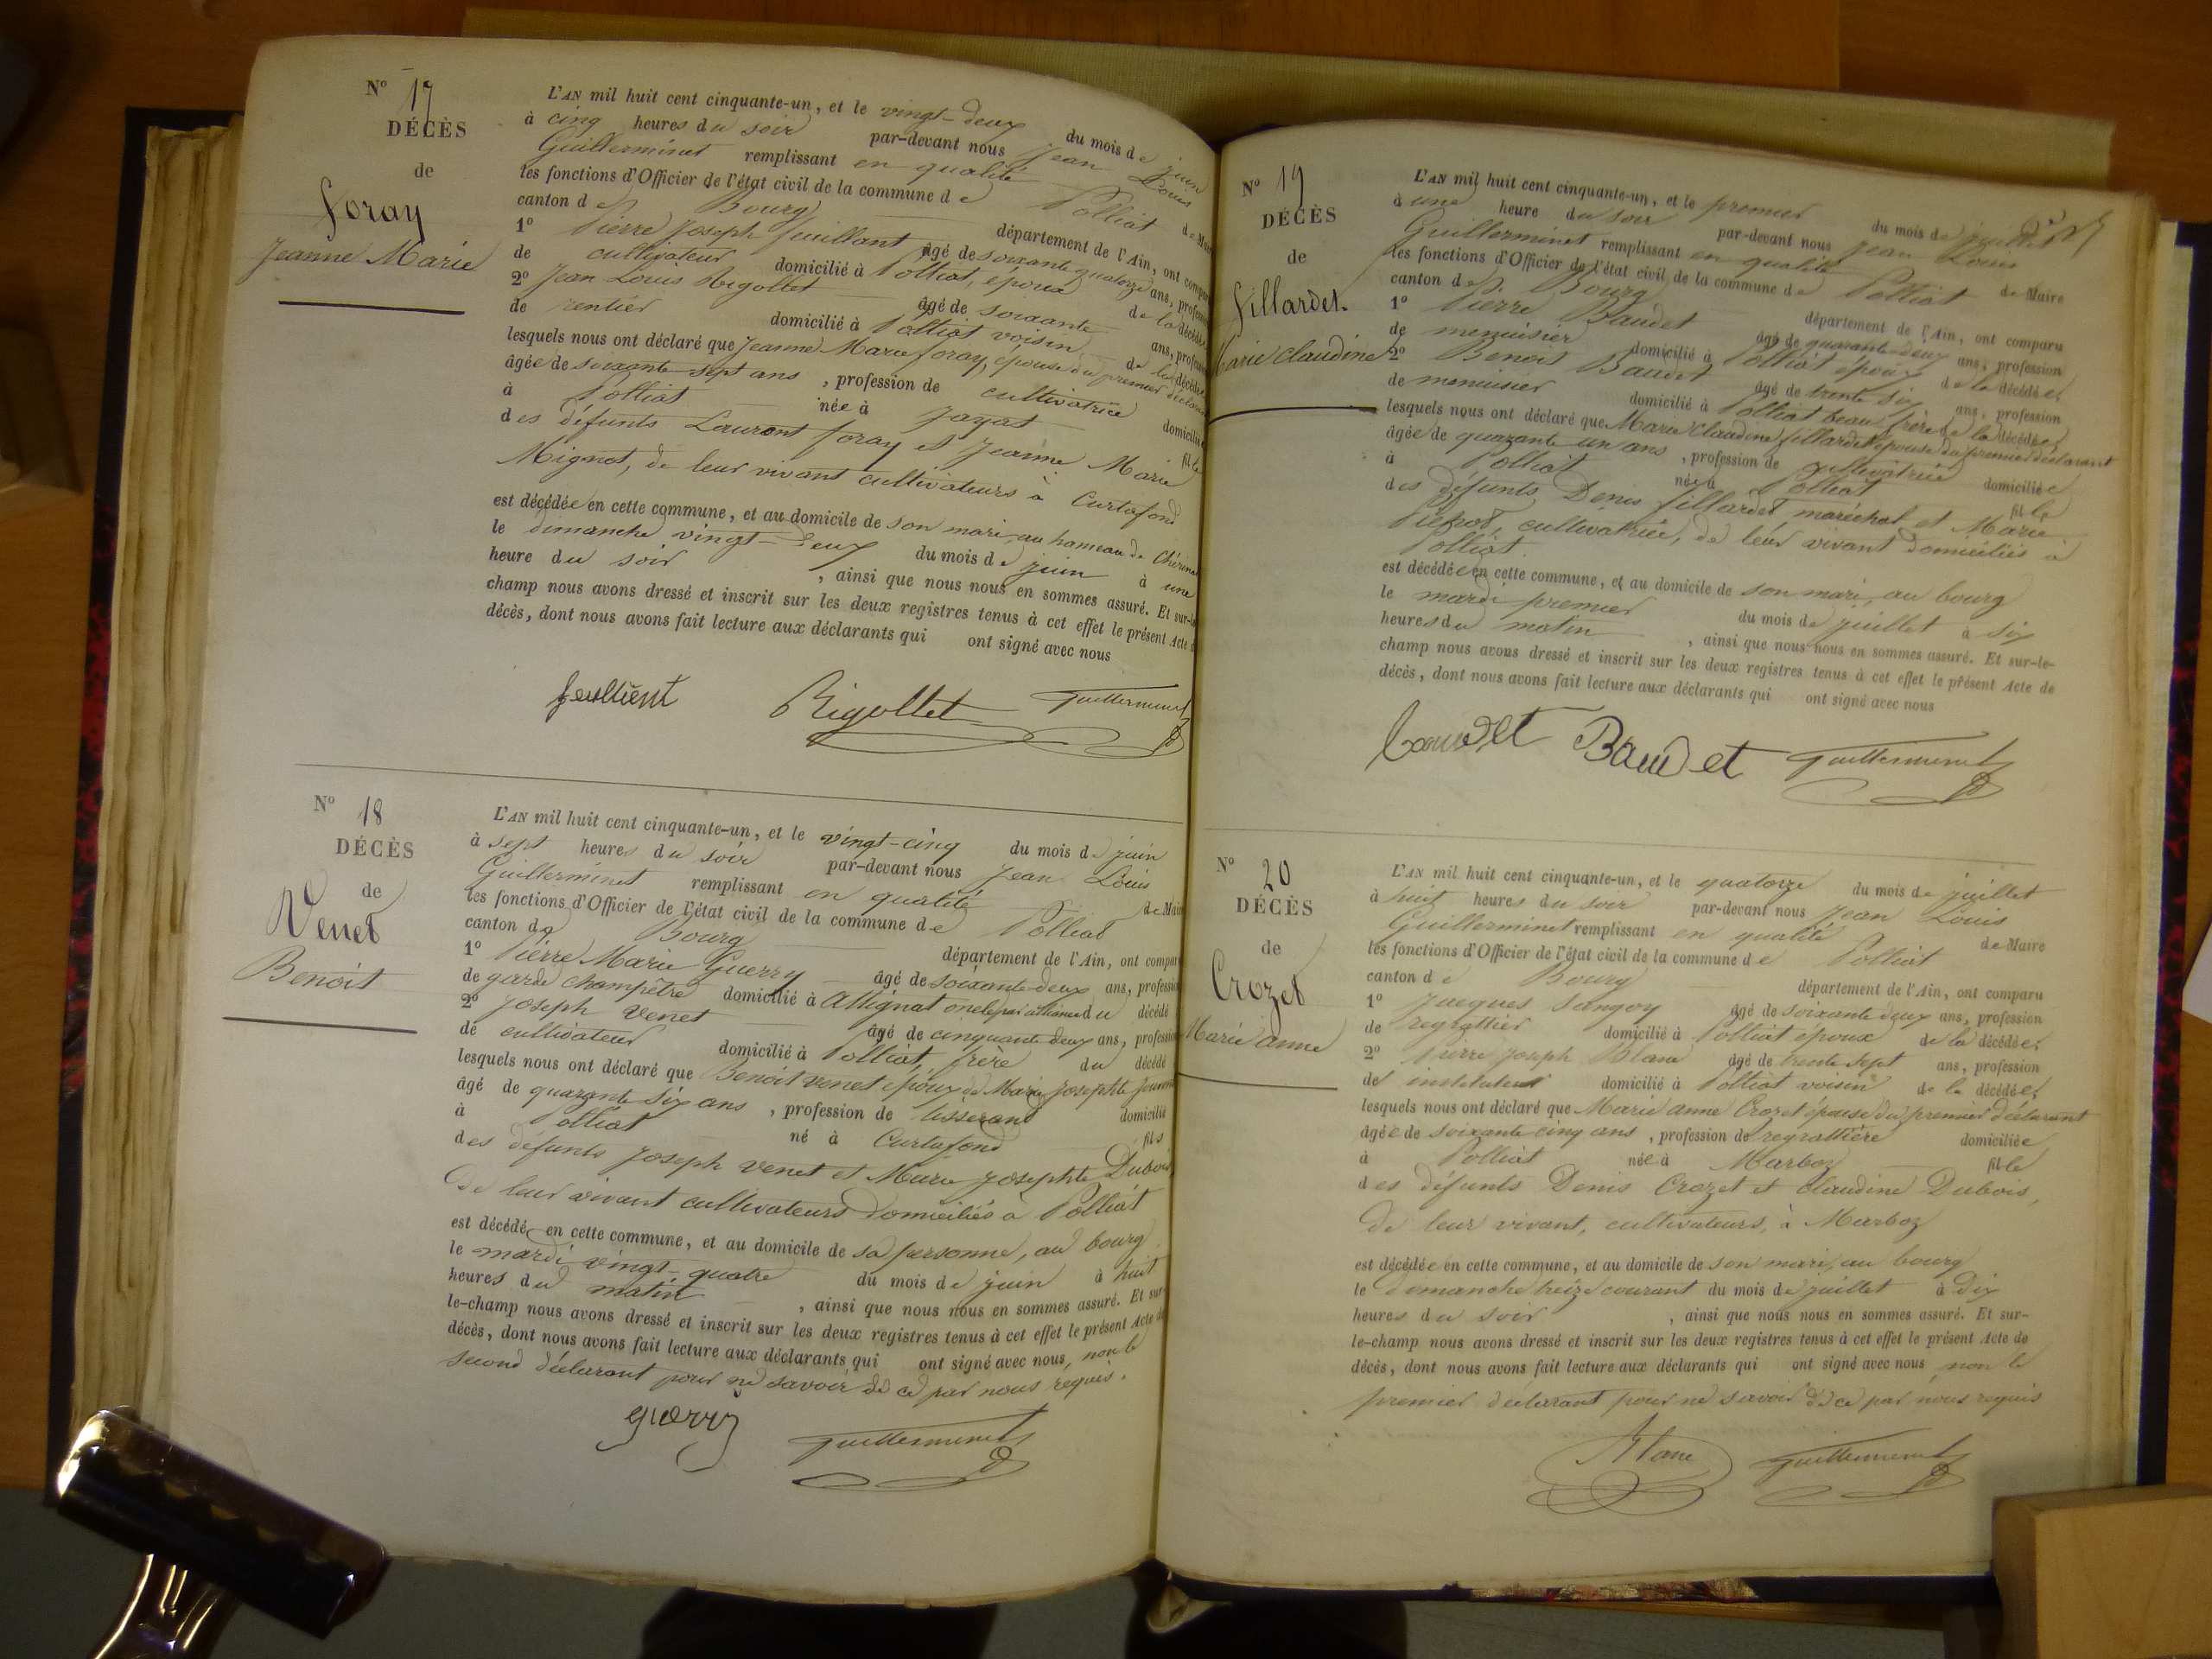 Nº 17
DÉCÈS
de
Foray
Jeanne Marie
L'AN mil huit cent cinquante-un, et le vingt-deux du mois de juin
à cinq heures du soir par-devant nous Jean Louis
Guillerminet remplissant en qualité de Maire
les fonctions d'Officier de l'état civil de la commune de Polliat
canton de Bourg département de l'Ain, ont comparu
1º Pierre Joseph feuillant âgé de soixante quatorze ans, profession
de cultivateur domicilié à Polliat, époux de la décédée
2º Jean Louis Rigollet âgé de soixante ans, profession
de rentier domicilié à Polliat voisin de la décédée
lesquels nous ont déclaré que Jeanne Marie foray, épouse du premier déclarant
âgée de soixante-sept ans, profession de cultivatrice domiciliée
à Polliat née à Jayat fille
des défunts Laurent foray et Jeanne Marie
Mignot, de leur vivant cultivateurs à Curtafond
est décédée en cette commune, et au domicile de son mari, au hameau de
le dimanche vingt-deux du mois de juin à une
heure du soir, ainsi que nous nous en sommes assuré. Et sur-le-
champ nous avons dressé et inscrit sur les deux registres tenus à cet effet le présent Acte de
décès, dont nous avons fait lecture aux déclarants qui ont signé avec nous
Rigollet Guillerminet
Nº 18
DÉCÈS
de
Venet
Benoit
L'AN mil huit cent cinquante-un, et le vingt-cinq du mois de juin
à sept heures du soir par-devant nous Jean Louis
Guillerminet remplissant en qualité de Maire
les fonctions d'Officier de l'état civil de la commune de Polliat
canton de Bourg département de l'Ain, ont comparu
1º Pierre Marie Guerry âgé de soixante-deux ans, profession
de garde champêtre domicilié à Attignat oncle par alliance du décédé
2º Joseph Venet âgé de cinquante deux ans, profession
de cultivateur domicilié à Polliat, frère du décédé
lesquels nous ont déclaré que Benoit Venet époux de Marie Josephte
âgé de quarante six ans, profession de tisserand domicilié
à Polliat né à Curtafond fils
des défunts Joseph Venet et Marie Josephte Dubois
de leur vivant cultivateurs domiciliés à Polliat
est décédé en cette commune, et au domicile de sa personne, au bourg
le mardi vingt-quatre du mois de juin à huit
heures du matin, ainsi que nous nous en sommes assuré. Et sur-
le-champ nous avons dressé et inscrit sur les deux registres tenus à cet effet le présent Acte de
décès, dont nous avons fait lecture aux déclarants qui ont signé avec nous, non le
second déclarant pour ne savoir de ce par nous requis.
guerry Guillerminet
Nº 19
DÉCÈS
de
fillardet.
Marie Claudine
L'AN mil huit cent cinquante-un, et le premier du mois de juillet
à une heure du soir par-devant nous Jean Louis
Guillerminet remplissant en qualité de Maire
les fonctions d'Officier de l'état civil de la commune de Polliat
canton de Bourg département de l'Ain, ont comparu
1º Pierre Baudet âgé de quarante-deux ans, profession
de menuisier domicilié à Polliat époux de la décédée
2º Benoit Baudet âgé de trente six ans, profession
de menuisier domicilié à Polliat beau frère de la décédée
lesquels nous ont déclaré que Marie Claudine fillardet épouse du premier déclarant
âgée de quarante un ans, profession de cultivatrice domiciliée
à Polliat née à Polliat fille
des défunts Denis fillardet maréchal et Marie
cultivatrice, de leur vivant domiciliés à
Polliat.
est décédée en cette commune, et au domicile de son mari, au bourg
le mardi premier du mois de juillet à six
heures du matin, ainsi que nous nous en sommes assuré. Et sur-le-
champ nous avons dressé et inscrit sur les deux registres tenus à cet effet le présent Acte de
décès, dont nous avons fait lecture aux déclarants qui ont signé avec nous
baudet Baudet Guillerminet
Nº 20
DÉCÈS
de
Crozet
Marie anne
L'AN mil huit cent cinquante-un, et le quatorze du mois de juillet
à huit heures du soir par-devant nous Jean Louis
Guillerminet remplissant en qualité de Maire
les fonctions d'Officier de l'état civil de la commune de Polliat
canton de Bourg département de l'Ain, ont comparu
1º Jacques Sangoy âgé de soixante deux ans, profession
de regrattier domicilié à Polliat époux de la décédée
2º Pierre Joseph Blanc âgé de trente sept ans, profession
de instituteur domicilié à Polliat voisin de la décédée
lesquels nous ont déclaré que Marie anne Crozet épouse du premier déclarant
âgée de soixante cinq ans, profession de regrattière domiciliée
à Polliat née à Marboz fille
des défunts Denis Crozet et Claudine Dubois,
de leur vivant, cultivateurs, à Marboz
est décédée en cette commune, et au domicile de son mari, au bourg
le dimanche treize courant du mois de juillet à dix
heures du soir, ainsi que nous nous en sommes assuré. Et sur-
le-champ nous avons dressé et inscrit sur les deux registres tenus à cet effet le présent Acte de
décès, dont nous avons fait lecture aux déclarants qui ont signé avec nous non le
premier déclarant pour ne savoir de ce par nous requis
Blanc Guillerminet